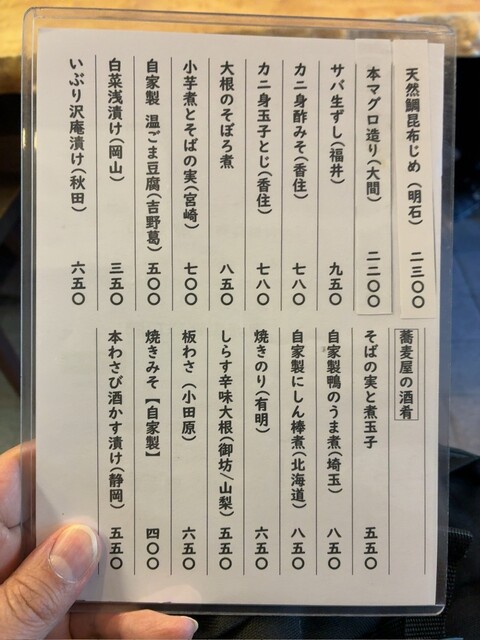 天然鯛昆布じめ（明石） 二三〇〇
本マグロ造り（大間） 二二〇〇
サバ生ずし（福井） 九五〇
カニ身酢みそ（香住） 七八〇
カニ身玉子とじ（香住） 七八〇
大根のそぼろ煮 八五〇
小芋煮とそばの実（宮崎） 七〇〇
自家製 温ごま豆腐（吉野葛） 五〇〇
白菜浅漬け（岡山） 三五〇
いぶり沢庵漬け（秋田） 六五〇
蕎麦屋の酒肴
そばの実と煮玉子 五五〇
自家製鴨のうま煮（埼玉） 八五〇
自家製にしん棒煮（北海道） 八五〇
焼きのり（有明） 六五〇
しらす辛味大根（御坊/山梨） 五五〇
板わさ（小田原） 六五〇
焼きみそ【自家製】 四〇〇
本わさび酒かす漬け（静岡） 五五〇